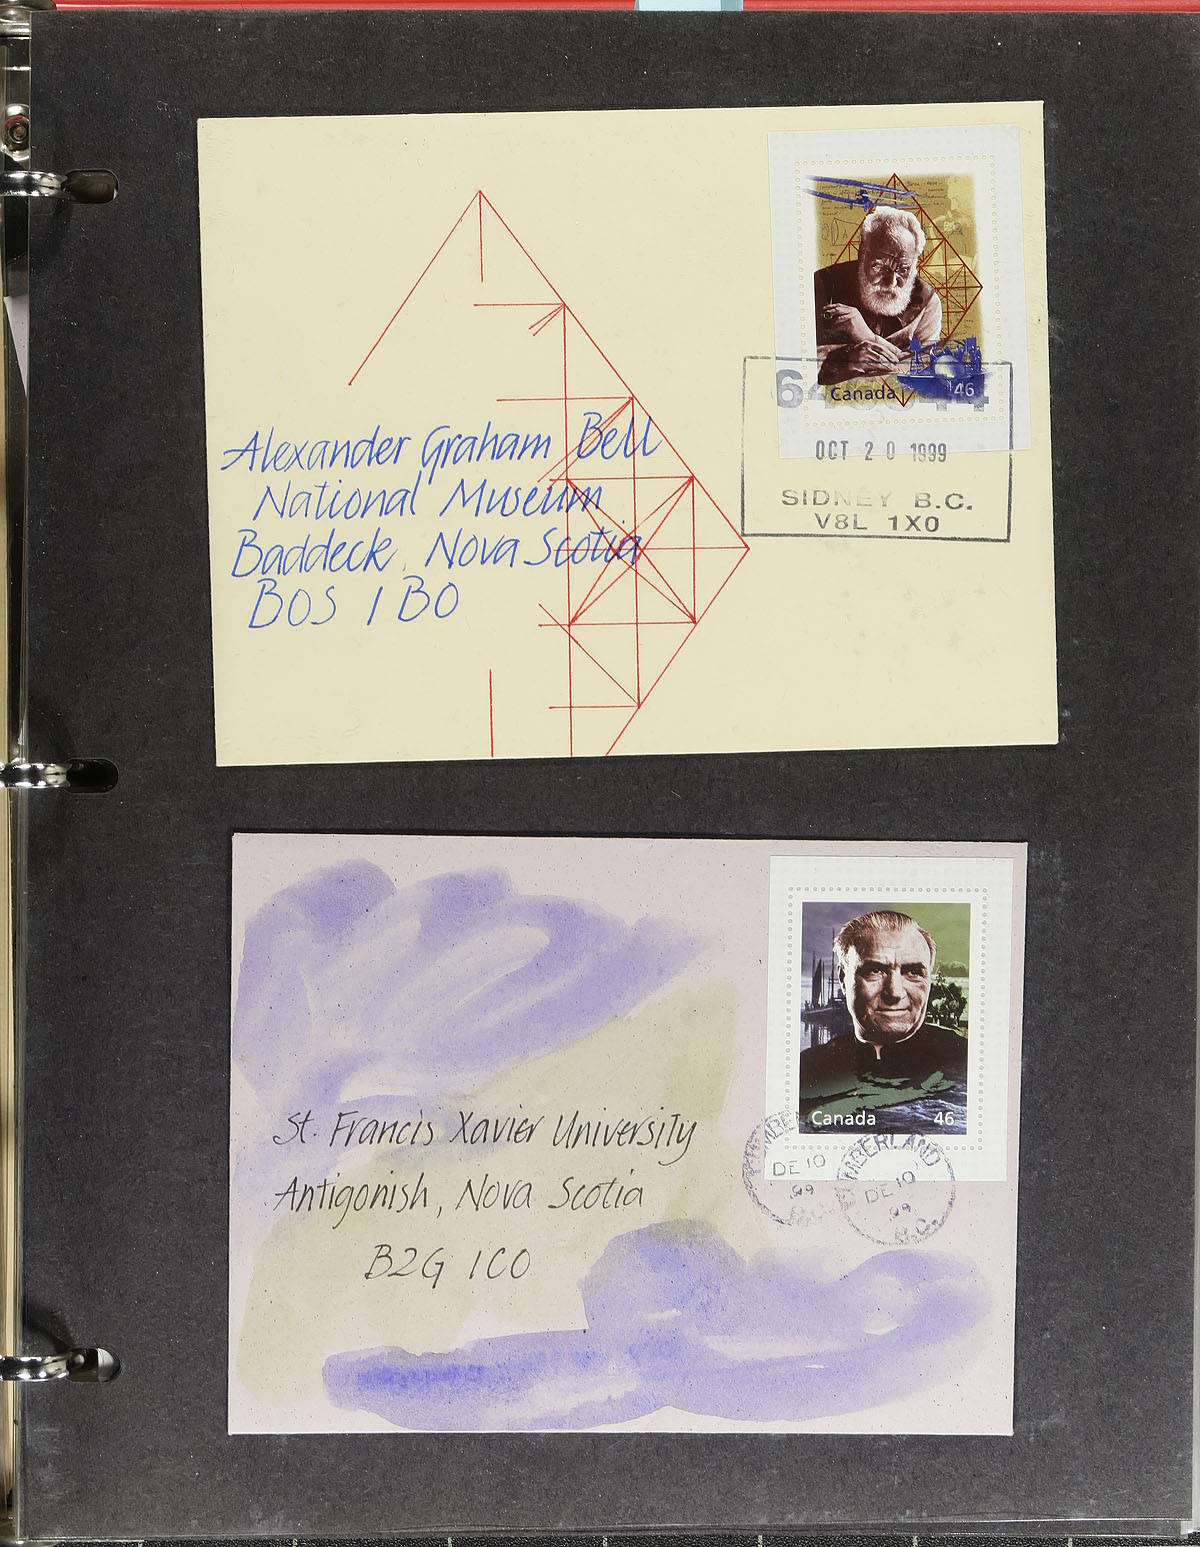 Canada 46
OCT 20 1999
SIDNEY B.C.
V8L 1X0
Alexander Graham Bell
National Museum
Baddeck, Nova Scotia
B0S 1B0
Canada 46
CUMBERLAND
DE 10
DE 10
99
99
B.C.
St. Francis Xavier University
Antigonish, Nova Scotia
B2G 1C0